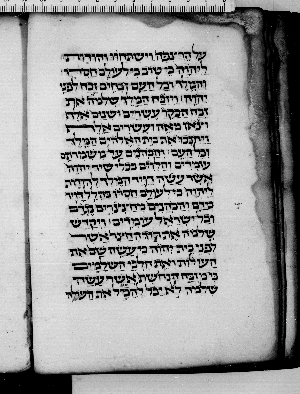 על הרצפה וישתחוו והודות
ליהוה כי טוב כי לעולם חסדו
והמלך וכל העם זבחים זבח לפני
יהוה ויזבח המלך שלמה את
זבח הבקר עשרים ושנים אלף
וצאן מאה ועשרים אלף
ויחנכו את בית האלהים המלך
וכל העם והכהנים על משמרותם
עומדים והלוים בכלי שיר יהוה
אשר עשה דויד המלך להודות
ליהוה כי לעולם חסדו בהלל דויד
בידם והכהנים מחצצרים נגדם
וכל ישראל עומדים ויקדש
שלמה את תוך החצר אשר
לפני בית יהוה כי עשה שם את
העולות ואת חלבי השלמים
כי מזבח הנחשת אשר עשה
שלמה לא יכל להכיל את העולה